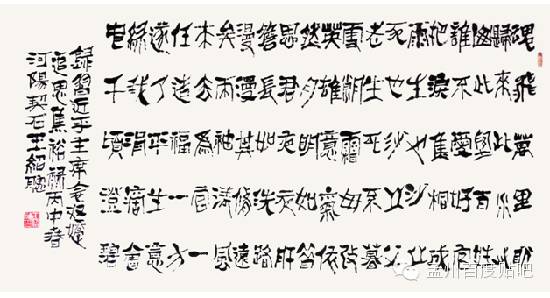 魂飛萬里盼
歸來此水此
山此地百姓
誰不愛好官
把淚焦桐成
雨生也沙丘
死也沙丘父
老生死系暮
雪朝霜毋改
英雄意氣依
然月明如昔
思君夜夜肝
膽長如洗路
漫漫其修遠
矣兩袖清風
來去為官一
任造福一方
遂了平生意
綠我涓滴會
它千頃澄碧
錄習近平主席念奴嬌
追思焦裕祿丙申春
河陽契石王紹聰
孟州百度贴吧